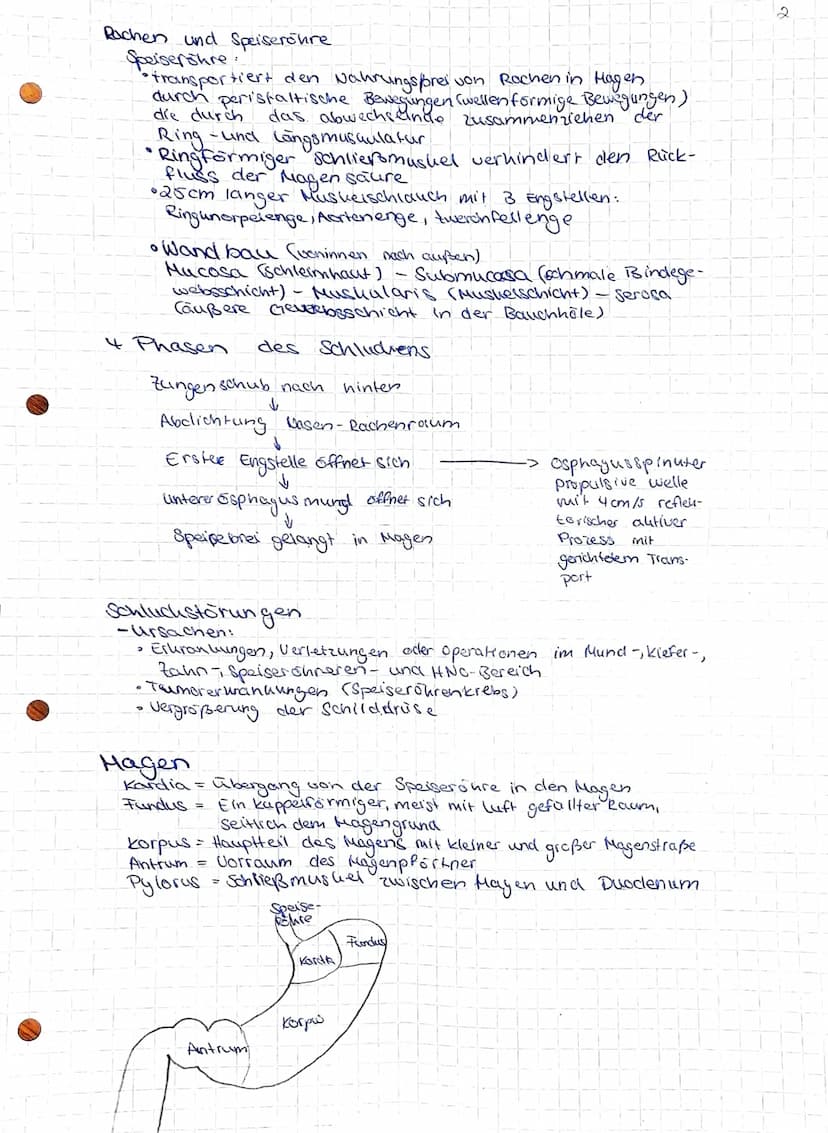 2
Rachen und Speiseröhre
Speiseröhre:
• transportiert den Nahrungsbrei von Rachen in Magen
durch peristaltische Bewegungen (wellenförmige Bewegungen)
die durch das abwechselnde zusammenziehen der
Ring- und Längsmuskulatur
• Ringförmiger Schließmuskel verhindert den Rück-
fluss der Magensäure
• 25cm langer Muskelschlauch mit 3 Engstellen:
Ringknorpelenge, Aortenenge, Zwerchfellenge
• Wandbau (von innen nach außen)
Mucosa (Schleimhaut) – Submucosa (schmale Bindege-
websschicht) – Muskularis (Muskelschicht) – Serosa
(äußere Gewebsschicht in der Bauchhöle)
4 Phasen des Schluckens
Zungenschub nach hinten
↓
Abdichtung Nasen-Rachenraum
↓
Erste Engstelle öffnet sich → Ösphagussphinkter
↓ propulsive welle
unterer Ösphagusmund öffnet sich mit 4cm/s reflek-
↓ torischer aktiver
Speisebrei gelangt in Magen Prozess mit
gerichtetem Trans-
port
Schluckstörungen
- Ursachen:
• Erkrankungen, Verletzungen oder Operationen im Mund-, Kiefer-,
Zahn-, Speiseröhreren- und HNO-Bereich
• Tumorerkrankungen (Speiseröhrenkrebs)
• Vergrößerung der Schilddrüse
Magen
Kardia = Übergang von der Speiseröhre in den Magen
Fundus = Ein kuppelförmiger, meist mit Luft gefüllter Raum,
seitlich dem Magengrund
Korpus = Hauptteil des Magens mit kleiner und großer Magenstraße
Antrum = Vorraum des Magenpförtner
Pylorus = Schließmuskel zwischen Magen und Duodenum
Speise-
röhre
Fundus
Kardia
Korpus
Antrum